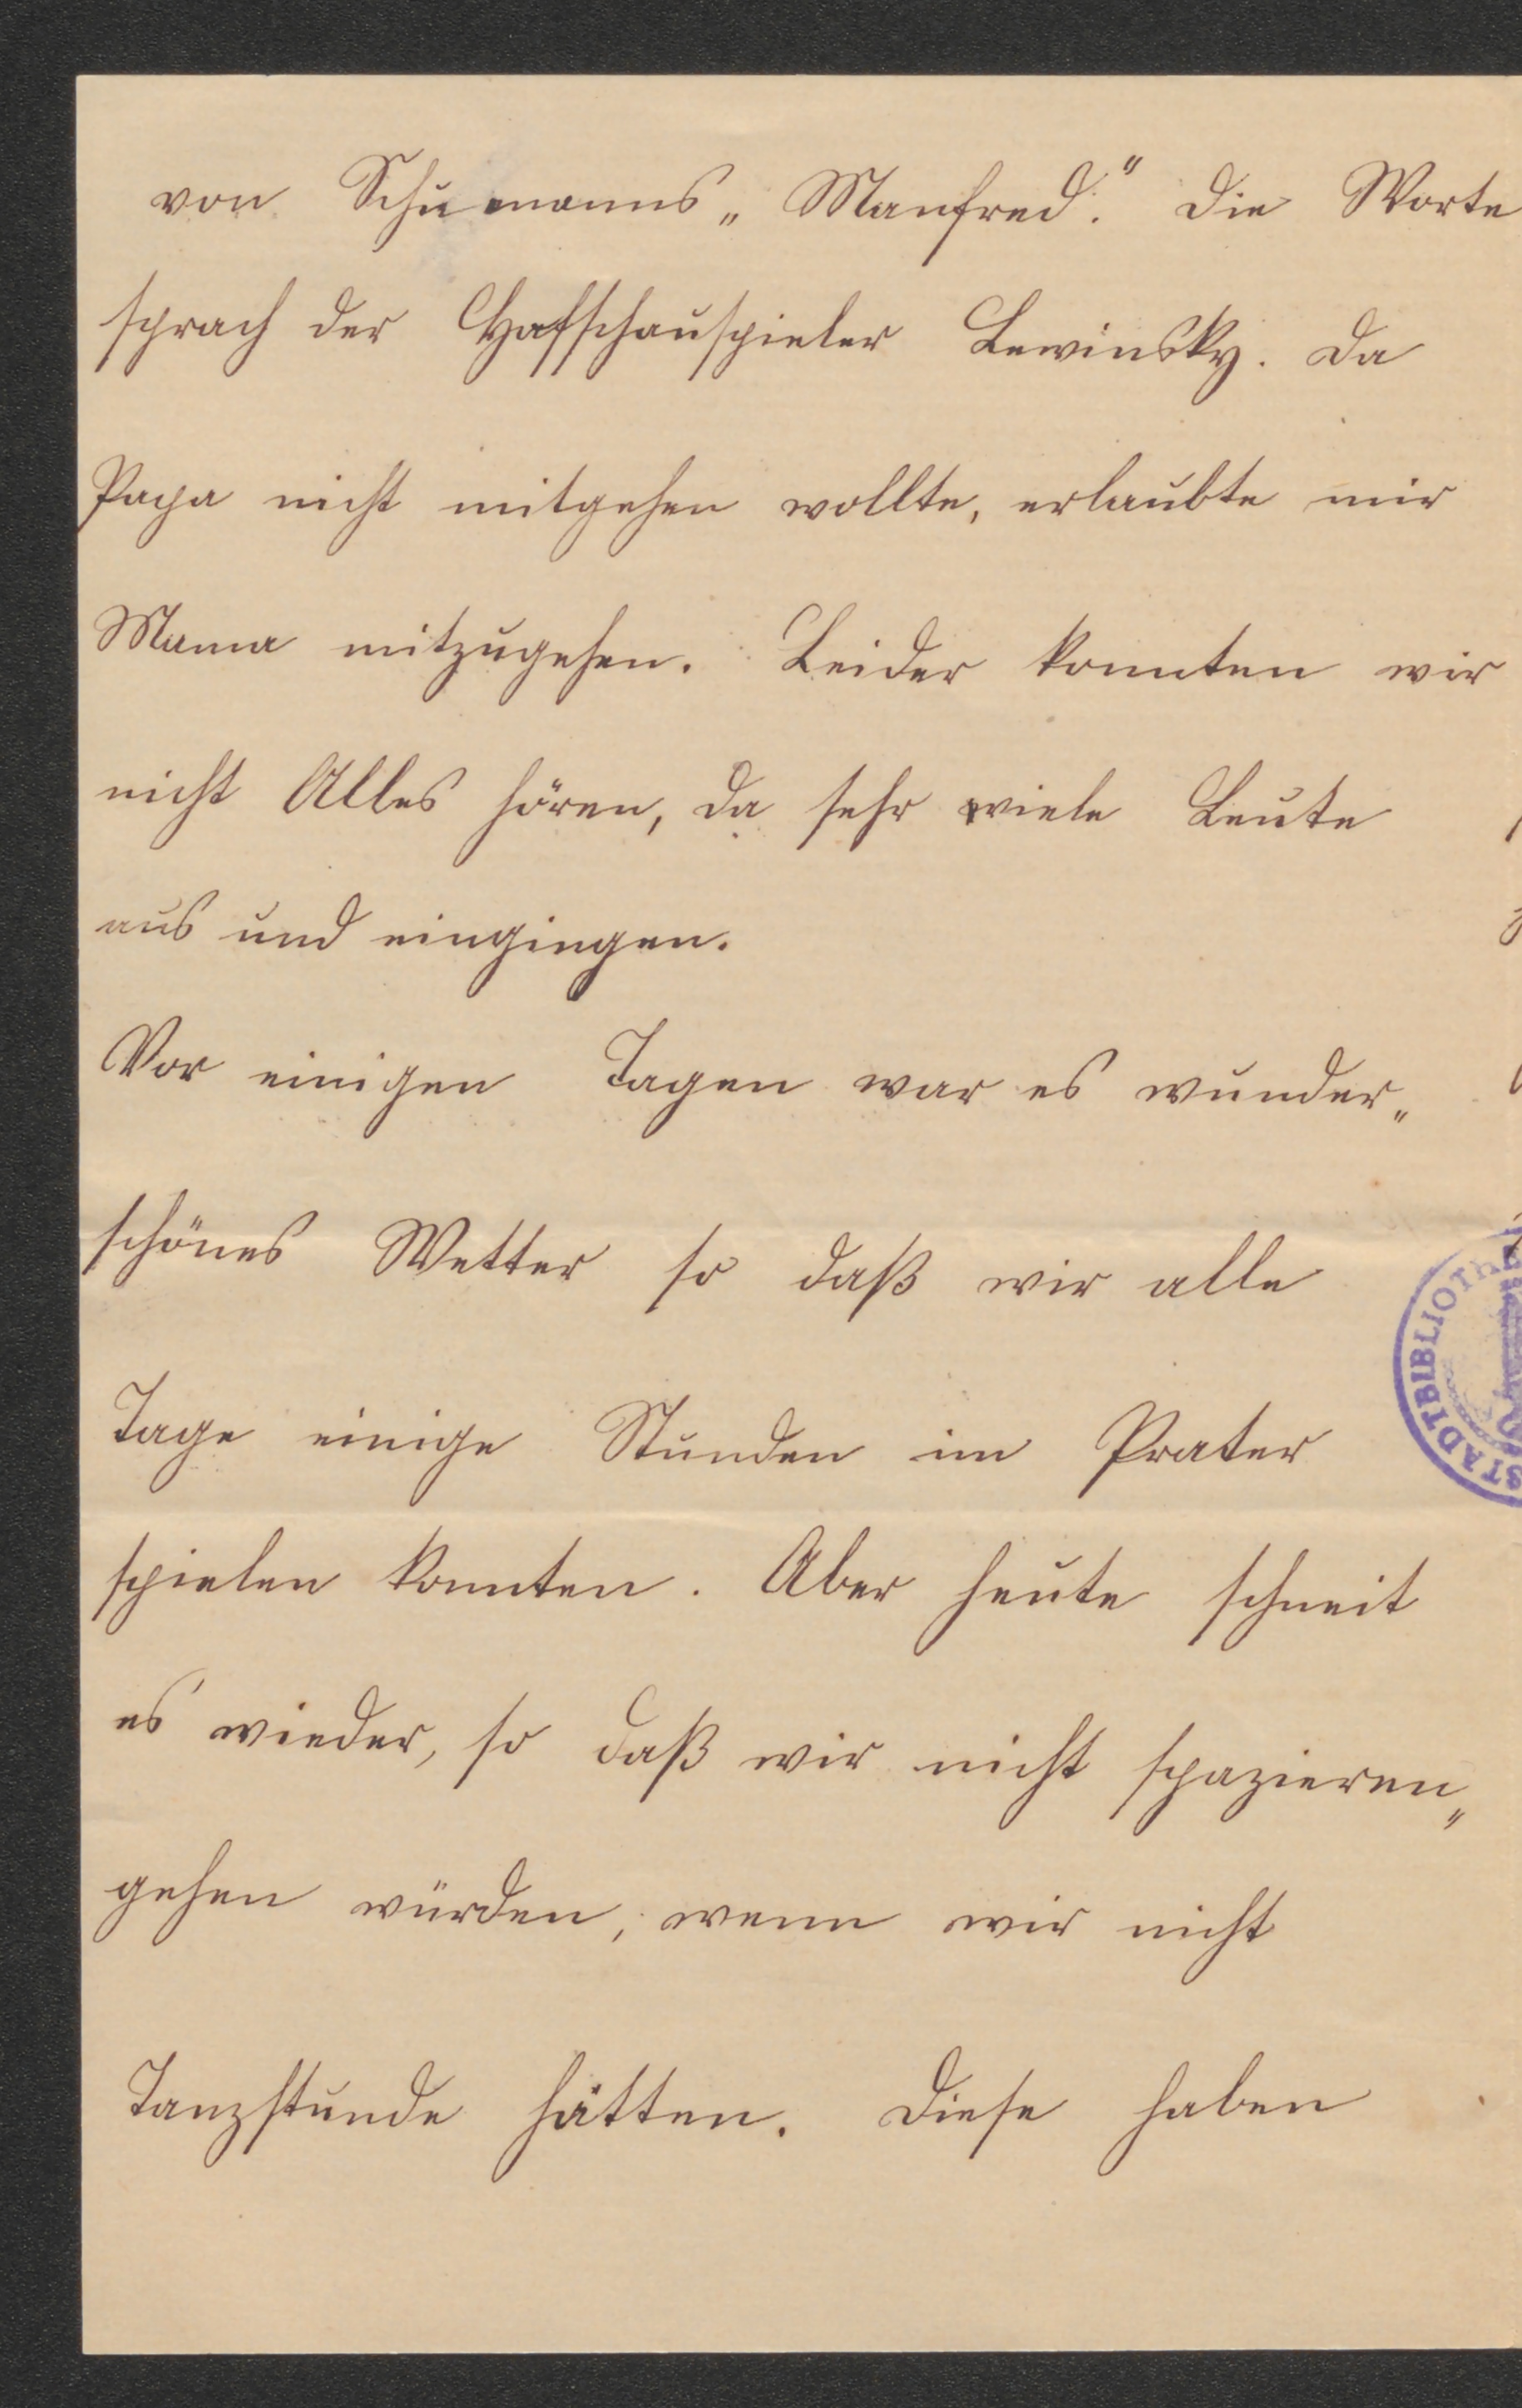 von Schumanns „Manfred." Die Worte
sprach der Hofschauspieler Lewinsky. Da
Papa nicht mitgehen wollte, erlaubte mir
Mama mitzugehen. Leider konnten wir
nicht Alles hören, da sehr viele Leute
aus und eingingen.
Vor einigen Tagen war es wunder„
schönes Wetter so daß wir alle
Tage einige Stunden im Prater
spielen konnten. Aber heute schneit
es wieder, so daß wir nicht spazieren„
gehen würden, wenn wir nicht
Tanzstunde hätten. Diese haben
STADTBIBLIOTH